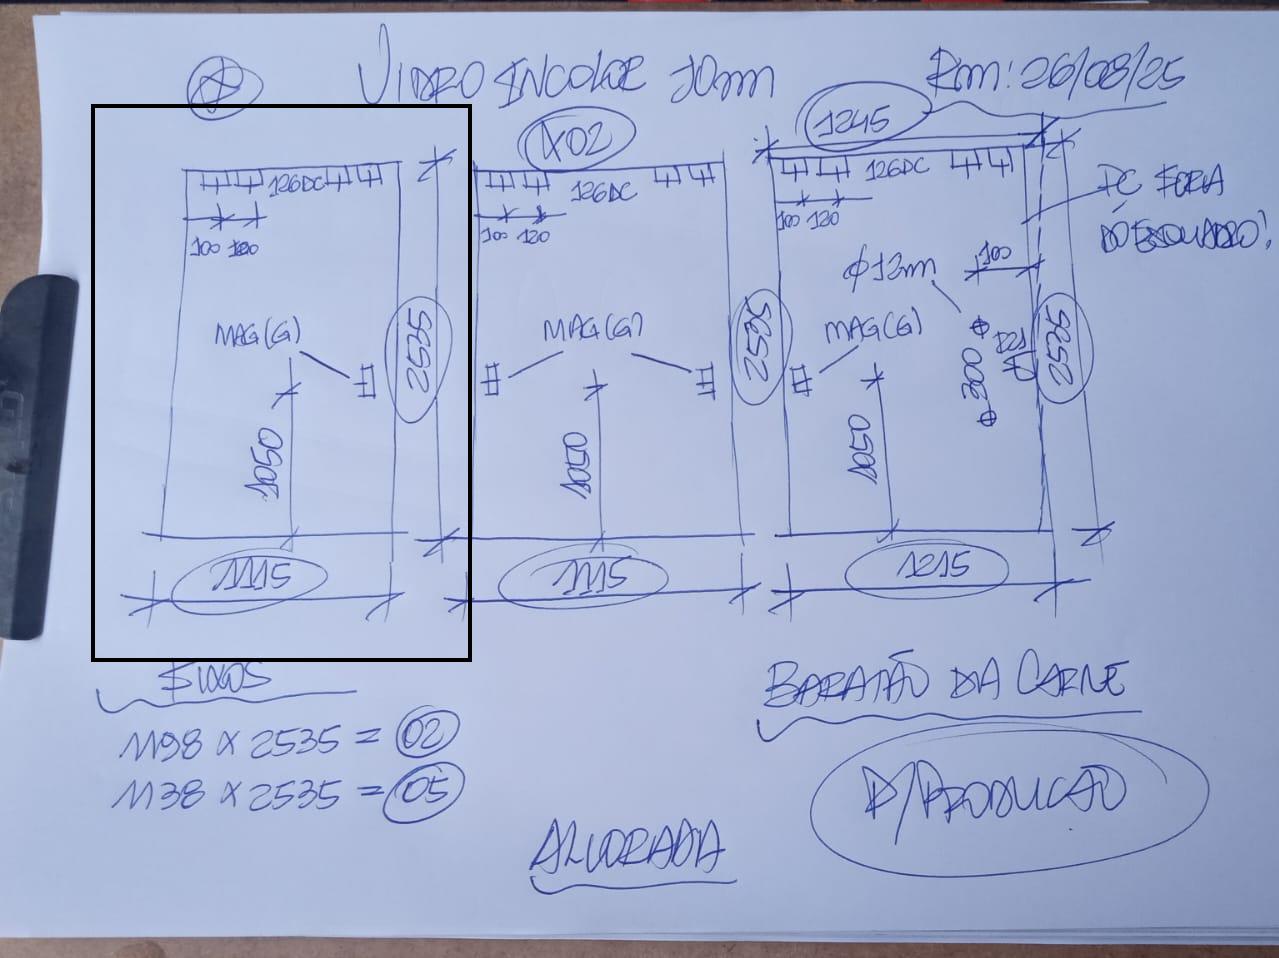 VIDRO INCOLOR 10mm
Rm: 26/08/25
X02
1245
126DC
126DC
126DC
100 120
100 120
100 120
PC FORA
DO ESQUADRO!
100
Ø12mm
MAG(G)
MAG(G)
MAG(G)
2535
2535
2535
300
1050
1050
1050
1115
1115
1215
FIXOS
1198 X 2535 = 02
1138 X 2535 = 05
BARATÃO DA CARNE
P/PRODUCAO
ALVORADA